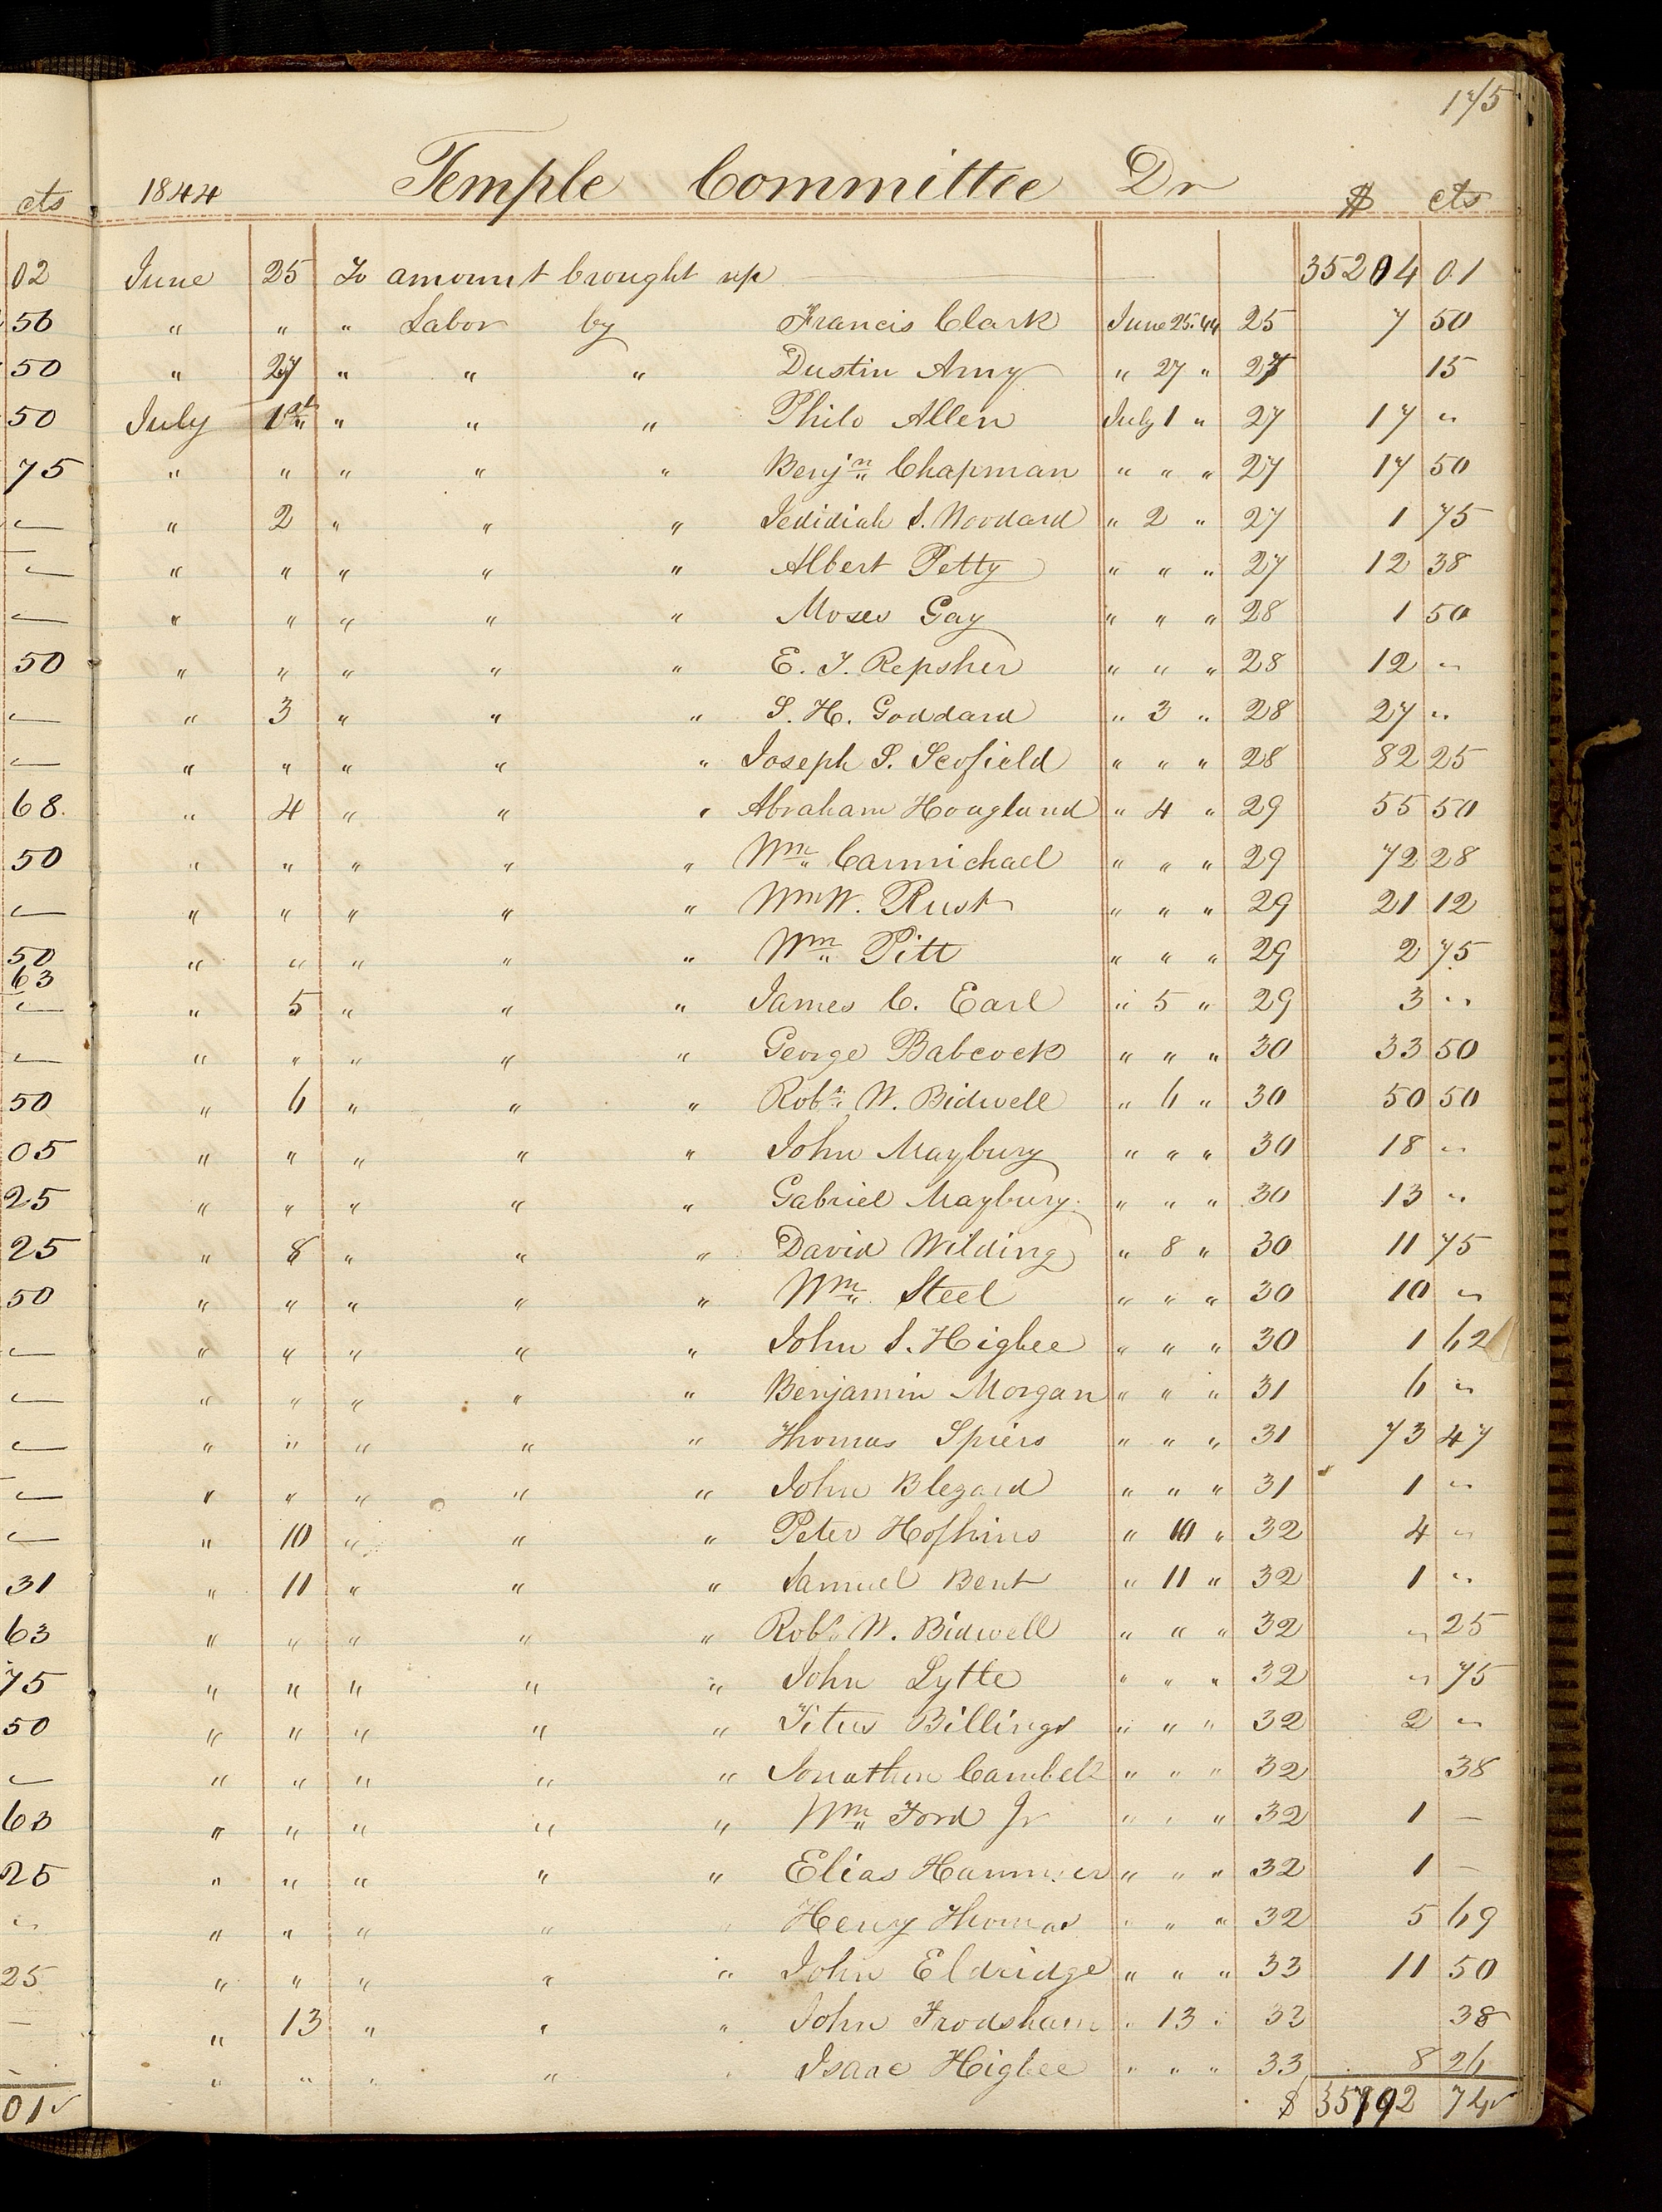 175
1844 Temple Committee Dr $ cts
June 25 To amount brought up 35204 01
" " " Labor by Francis Clark June 25. 44 25 7 50
" 27 " " " Dustin Amy " 27 " 27 15
July 1st " " " Philo Allen July 1 " 27 17 "
" " " " " Benjn Chapman " " " 27 17 50
" 2 " " " Jedidiah S. Woodard " 2 " 27 1 75
" " " " " Albert Petty " " " 27 12 38
" " " " " Moses Gay " " " 28 1 50
" " " " " E. J. Repsher " " " 28 12 "
" 3 " " " S. H. Goddard " 3 " 28 27 "
" " " " " Joseph S. Scofield " " " 28 82 25
" 4 " " " Abraham Hoagland " 4 " 29 55 50
" " " " " Wm Carmichael " " " 29 72 28
" " " " " Wm W. Rust " " " 29 21 12
" " " " " Wm Pitt " " " 29 2 75
" 5 " " " James C. Earl " 5 " 29 3 "
" " " " " George Babcock " " " 30 33 50
" 6 " " " Robt W. Bidwell " 6 " 30 50 50
" " " " " John Maybury " " " 30 18 "
" " " " " Gabriel Maybury. " " " 30 13 "
" 8 " " " David Wilding " 8 " 30 11 75
" " " " " Wm Steel " " " 30 10 "
" " " " " John S. Higbee " " " 30 1 62
" " " " " Benjamin Morgan " " " 31 6 "
" " " " " Thomas Spiers " " " 31 73 47
" " " " " John Blezard " " " 31 1 "
" 10 " " " Peter Hofhins " 10 " 32 4 "
" 11 " " " Samuel Bent " 11 " 32 1 "
" " " " " Robt W. Bidwell " " " 32 " 25
" " " " " John Lytle " " " 32 " 75
" " " " " Titus Billings " " " 32 2 "
" " " " " Jonathan Cambell " " " 32 38
" " " " " Wm Ford Jr " " " 32 1 —
" " " " " Elias Hammer " " " 32 1 —
" " " " " Henry Thomas " " " 32 5 69
" " " " " John Eldridge " " " 33 11 50
" 13 " " " John Frodsham " 13 " 33 38
" " " " " Isaac Higbee " " " 33 8 26
$ 35792 74
cts
02
56
50
50
75
—
—
—
50
—
—
68.
50
—
50
63
—
—
50
05
25
25
50
—
—
—
—
—
31
63
75
50
—
63
25
"
25
—
—
01